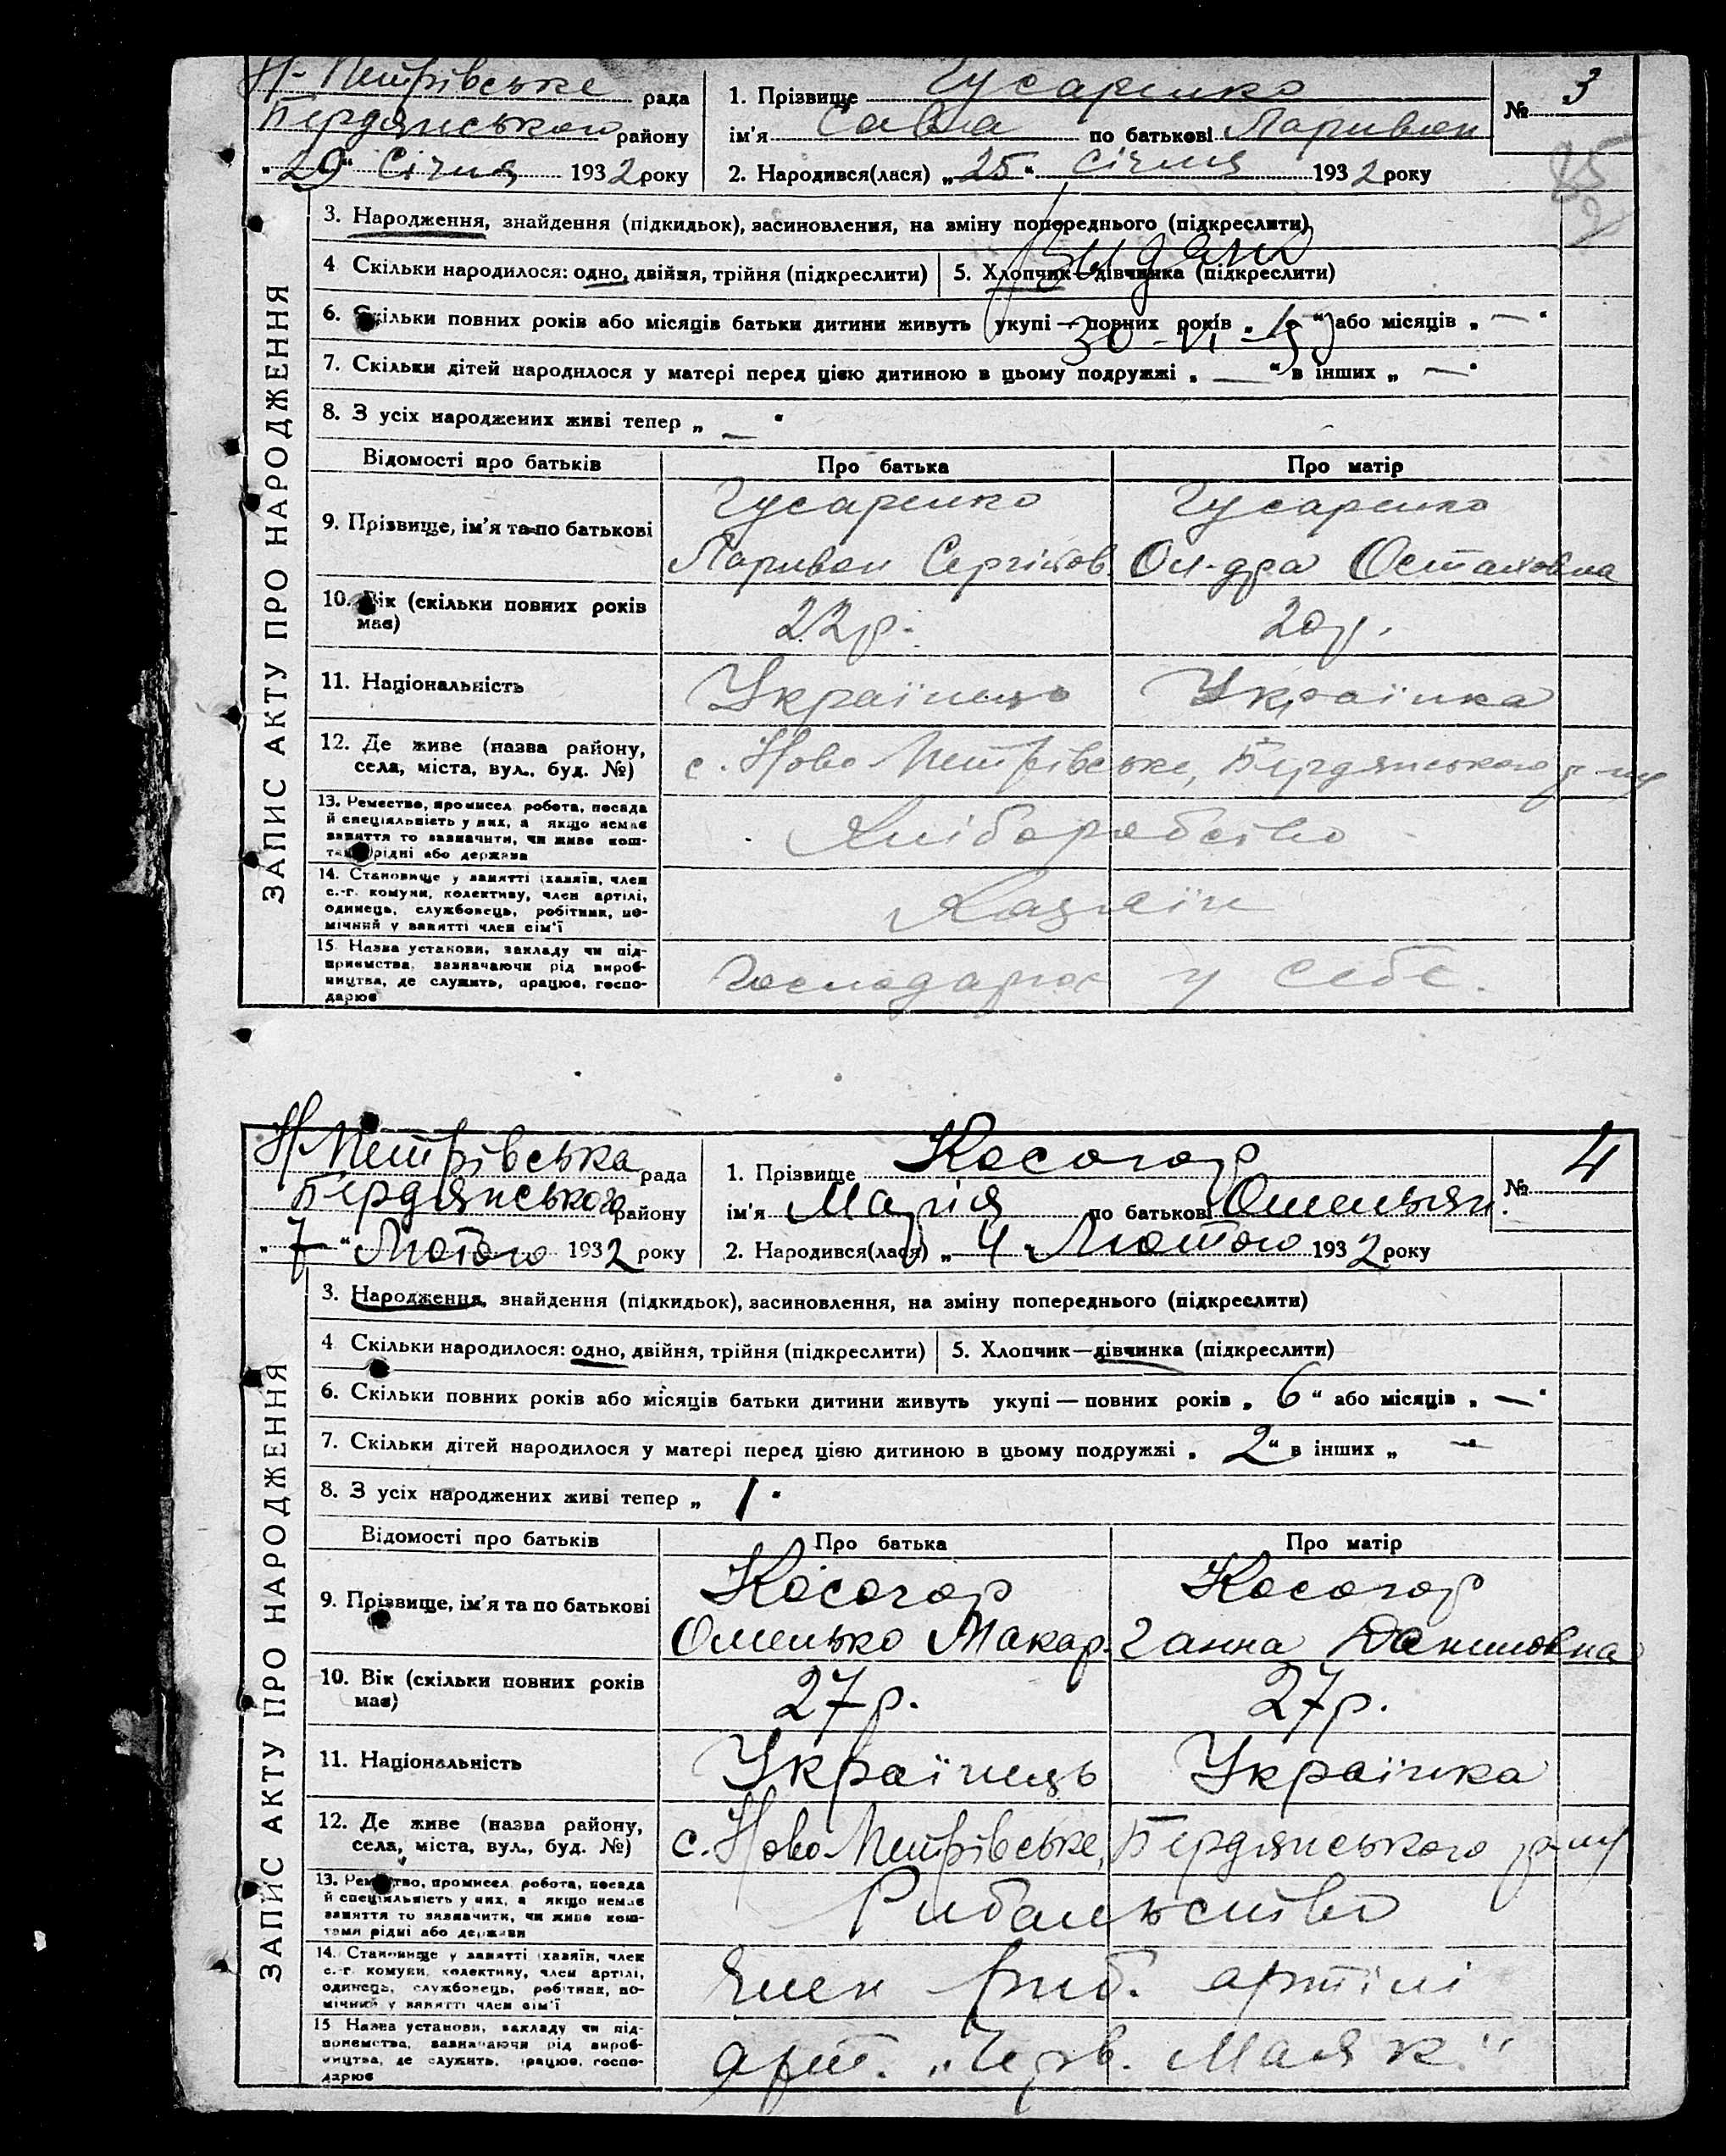 Н-Петрівське рада
Бердянського району
"29" Січня 1932 року
1. Прізвище Гусаренко
ім'я Савва по батькові Ларивон
2. Народився(лася) „25" січня 1932 року
№ 3
3. Народження, знайдення (підкидьок), засиновлення, на зміну попереднього (підкреслити)
4 Скільки народилося: одно, двійня, трійня (підкреслити)
5. Хлопчик—дівчинка (підкреслити)
6. Скільки повних років або місяців батьки дитини живуть укупі — повних років „ “ або місяців „ — “
7. Скільки дітей народилося у матері перед цією дитиною в цьому подружжі „ — “ в інших „ — “
8. З усіх народжених живі тепер „ — “
ЗАПИС АКТУ ПРО НАРОДЖЕННЯ
Відомості про батьків Про батька Про матір
9. Прізвище, ім'я та по батькові
Гусаренко Гусаренко
Ларивон Сергійов. Ол-дра Остаповна
10. Вік (скільки повних років має) 22р. 20р.
11. Національність Українець Українка
12. Де живе (назва району,
села, міста, вул., буд. №) с. Ново Петрівське, Бердянського р-ну
13. Ремество, промисел, робота, посада
й спеціяльність у них, а якщо немає
заняття то зазначити, чи живе кош-
тами рідні або держави
Хліборобство
14. Становище у занятті (хазяїн, член
с.-г. комуни, колективу, член артілі,
одинець, службовець, робітник, по-
мічний у занятті член сім'ї
Хазяїн
15. Назва установи, закладу чи під-
приємства, зазначаючи рід вироб-
ництва, де служить, працює, госпо-
дарює
Господарює у себе.
Н-Петрівська рада
Бердянського району
„7“ Лютого 1932 року
1. Прізвище Косогор
ім'я Марія по батькові Омельян.
2. Народився(лася) „4 Лютого 1932 року
№ 4
3. Народження, знайдення (підкидьок), засиновлення, на зміну попереднього (підкреслити)
4 Скільки народилося: одно, двійня, трійня (підкреслити)
5. Хлопчик—дівчинка (підкреслити)
6. Скільки повних років або місяців батьки дитини живуть укупі — повних років „ 6 “ або місяців „ — “
7. Скільки дітей народилося у матері перед цією дитиною в цьому подружжі „ 2 “ в інших „ —
8. З усіх народжених живі тепер „ 1 “
ЗАПИС АКТУ ПРО НАРОДЖЕННЯ
Відомості про батьків Про батька Про матір
9. Прізвище, ім'я та по батькові
Косогор Косогор
Омелько Макар. Ганна Даниловна
10. Вік (скільки повних років має) 27р. 27р.
11. Національність Українець Українка
12. Де живе (назва району,
села, міста, вул., буд. №) с. Ново-Петрівське, Бердянського р-ну
13. Ремество, промисел, робота, посада
й спеціяльність у них, а якщо немає
заняття то зазначити, чи живе кош-
тами рідні або держави
Рибальство
14. Становище у занятті (хазяїн, член
с.-г. комуни, колективу, член артілі,
одинець, службовець, робітник, по-
мічний у занятті член сім'ї
Член риб. артілі
15 Назва установи, закладу чи під-
приємства, зазначаючи рід вироб-
ництва, де служить, працює, госпо-
дарює
арт. „Черв. Маяк."